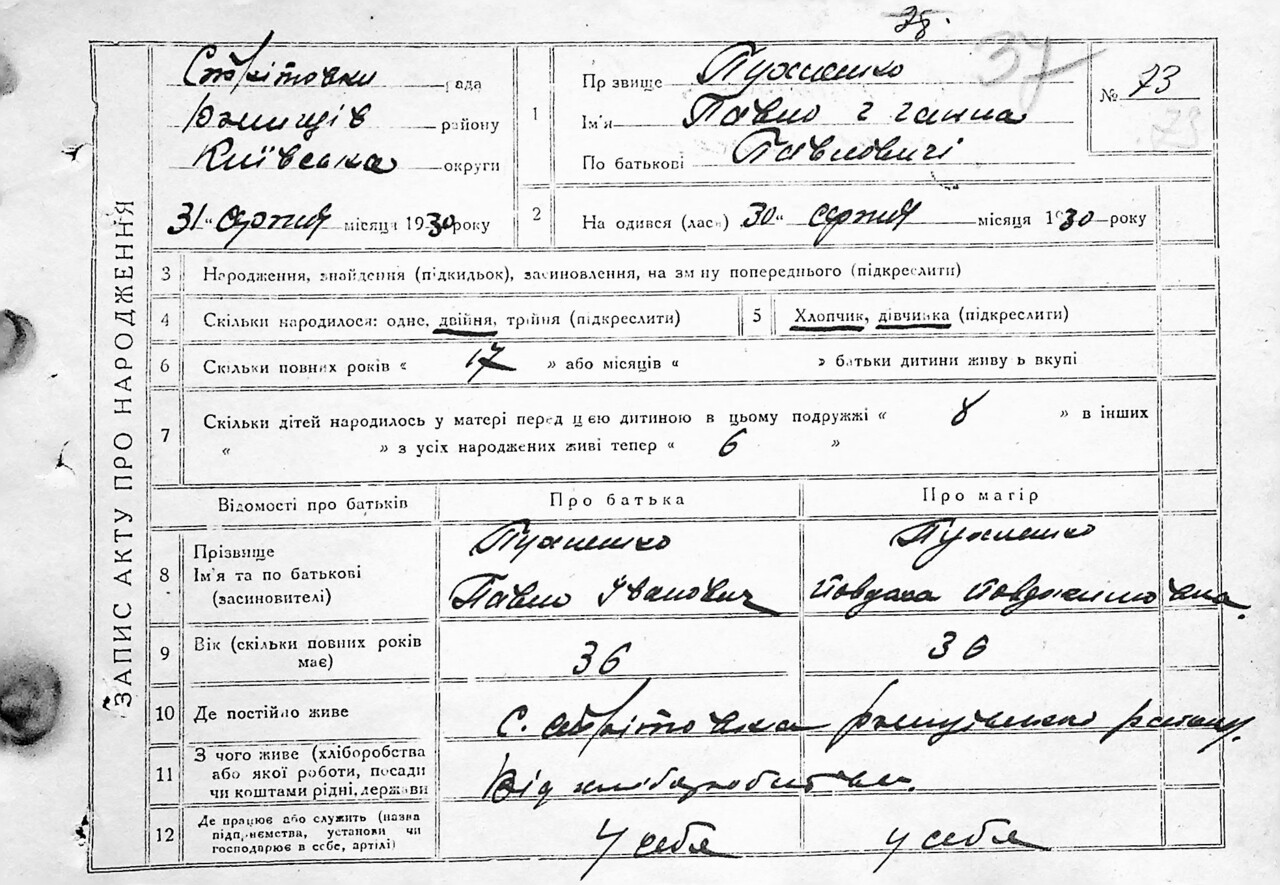 37
ЗАПИС АКТУ ПРО НАРОДЖЕННЯ
рада
району
Київська округи
31 " серпня місяця 1930 року
1 Пр звище
Ім'я Павло ганна
По батькові Павловичі
№ 73
73
2 На одився (лась) 30 " серпня місяця 1930 року
3 Народження, знайдення (підкидьок), засиновлення, на зм ну попереднього (підкреслити)
4 Скільки народилося: одне, двійня, трійня (підкреслити)
5 Хлопчик, дівчинка (підкреслити)
6 Скільки повних років « 17 » або місяців « » батьки дитини живу ь вкупі
7 Скільки дітей народилось у матері перед цією дитиною в цьому подружжі « 8 » в інших
« » з усіх народжених живі тепер « 6 »
Відомості про батьків Про батька Про матір
8 Прізвище
Ім'я та по батькові Павло Іванович
(засиновителі)
9 Вік (скільки повних років має) 36 36
10 Де постійно живе с.
11 З чого живе (хліборобства
або якої роботи, посади
чи коштами рідні, держави Від
12 Де працює або служить (назва
підп.нємства, установи чи
господарює в себе, артілі) У себя у себя